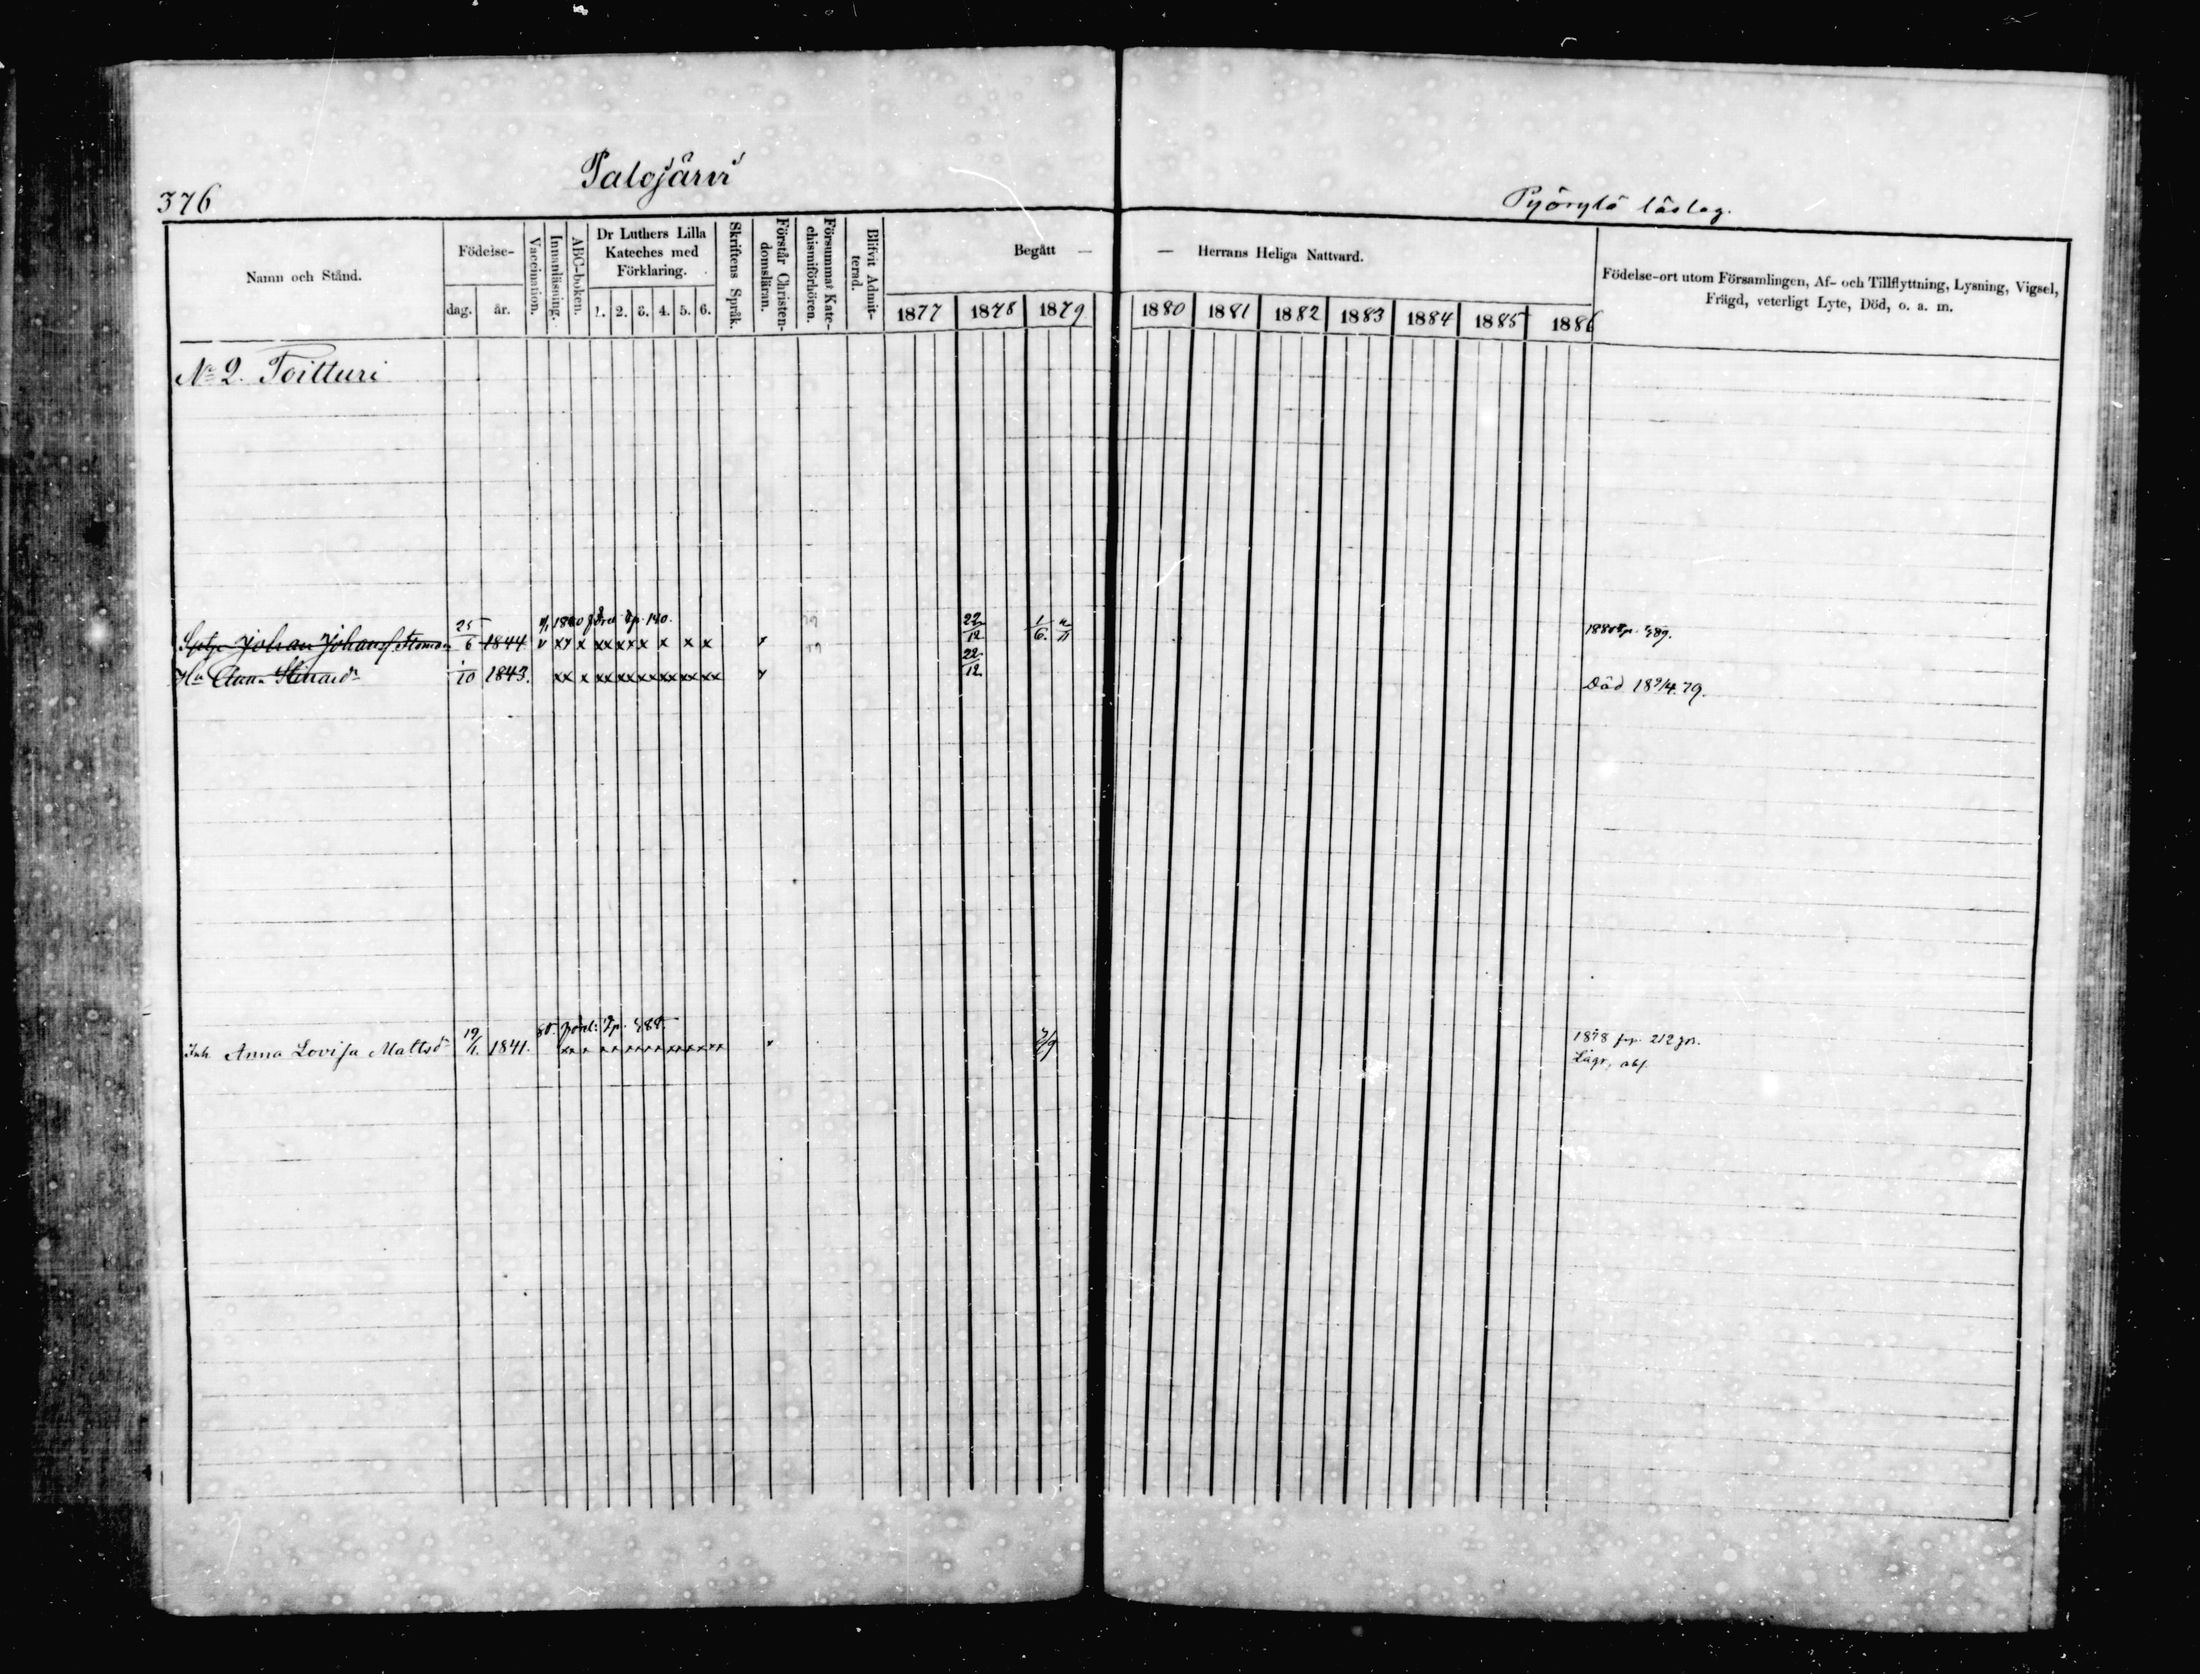 376
Palojärvi
Pyörylä läslag.
Namn och Stånd.
Födelse-
dag.
år.
Vaccination.
Innanläsning.
ABC-boken.
Dr Luthers Lilla
Kateches med
Förklaring.
1. 2. 3. 4. 5. 6.
Skriftens Språk.
Förstår Christen-
domsläran.
Försummat Kate-
chismiförhören.
Blifvit Admit-
terad.
Begått — — Herrans Heliga Nattvard.
1877 1878 1879 1880 1881 1882 1883 1884 1885 1886
Födelse-ort utom Församlingen, Af- och Tillflyttning, Lysning, Vigsel,
Frägd, veterligt Lyte, Död, o. a. m.
No 2. Toitturi
Johan Johansf 25/6 1844 v xx x xx xx xx x x x x 22/12 1/6
Hu Anna Stinaeds 1/10 1843. xx x xx xx xx xx xx xx x 22/12 Död 18 9/4 79.
Inh Anna Lovisa Maltsdr 19/1 1841. xx x xx xx xx xx xx xx x 7/9 1878 212
Lägr, abs.